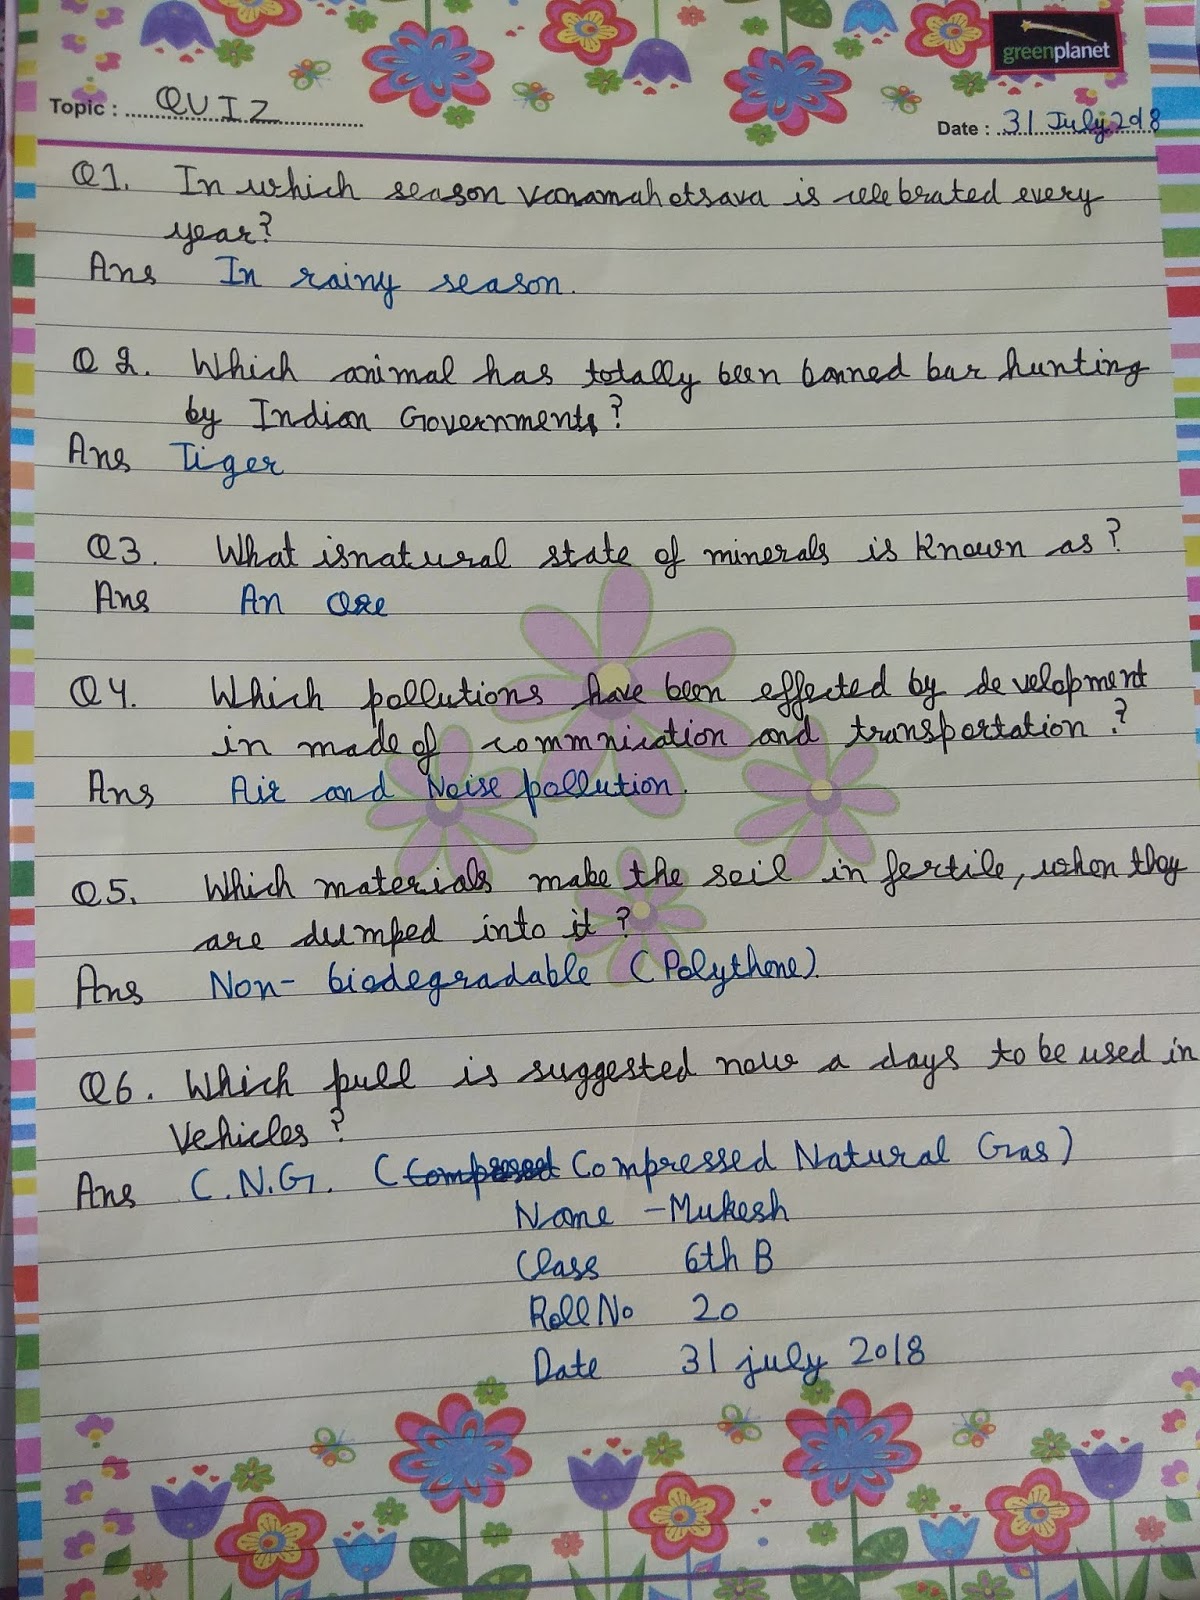 greenplanet
Topic : QUIZ
Date : 31 July 2018
Q1. In which season vanamahotsava is celebrated every
year?
Ans In rainy season.
Q2. Which animal has totally been banned bar hunting
by Indian Government?
Ans Tiger
Q3. What isnatural state of minerals is known as?
Ans An Ore
Q4. Which pollutions have been effected by development
in made of commnication and transportation?
Ans Air and Noise pollution.
Q5. Which materials make the soil in fertile, when they
are dumped into it?
Ans Non-biodegradable (Polythene).
Q6. Which pull is suggested now a days to be used in
Vehicles?
Ans C.N.G. ( Compressed Natural Gas)
Name - Mukesh
Class 6th B
Roll No 20
Date 31 july 2018